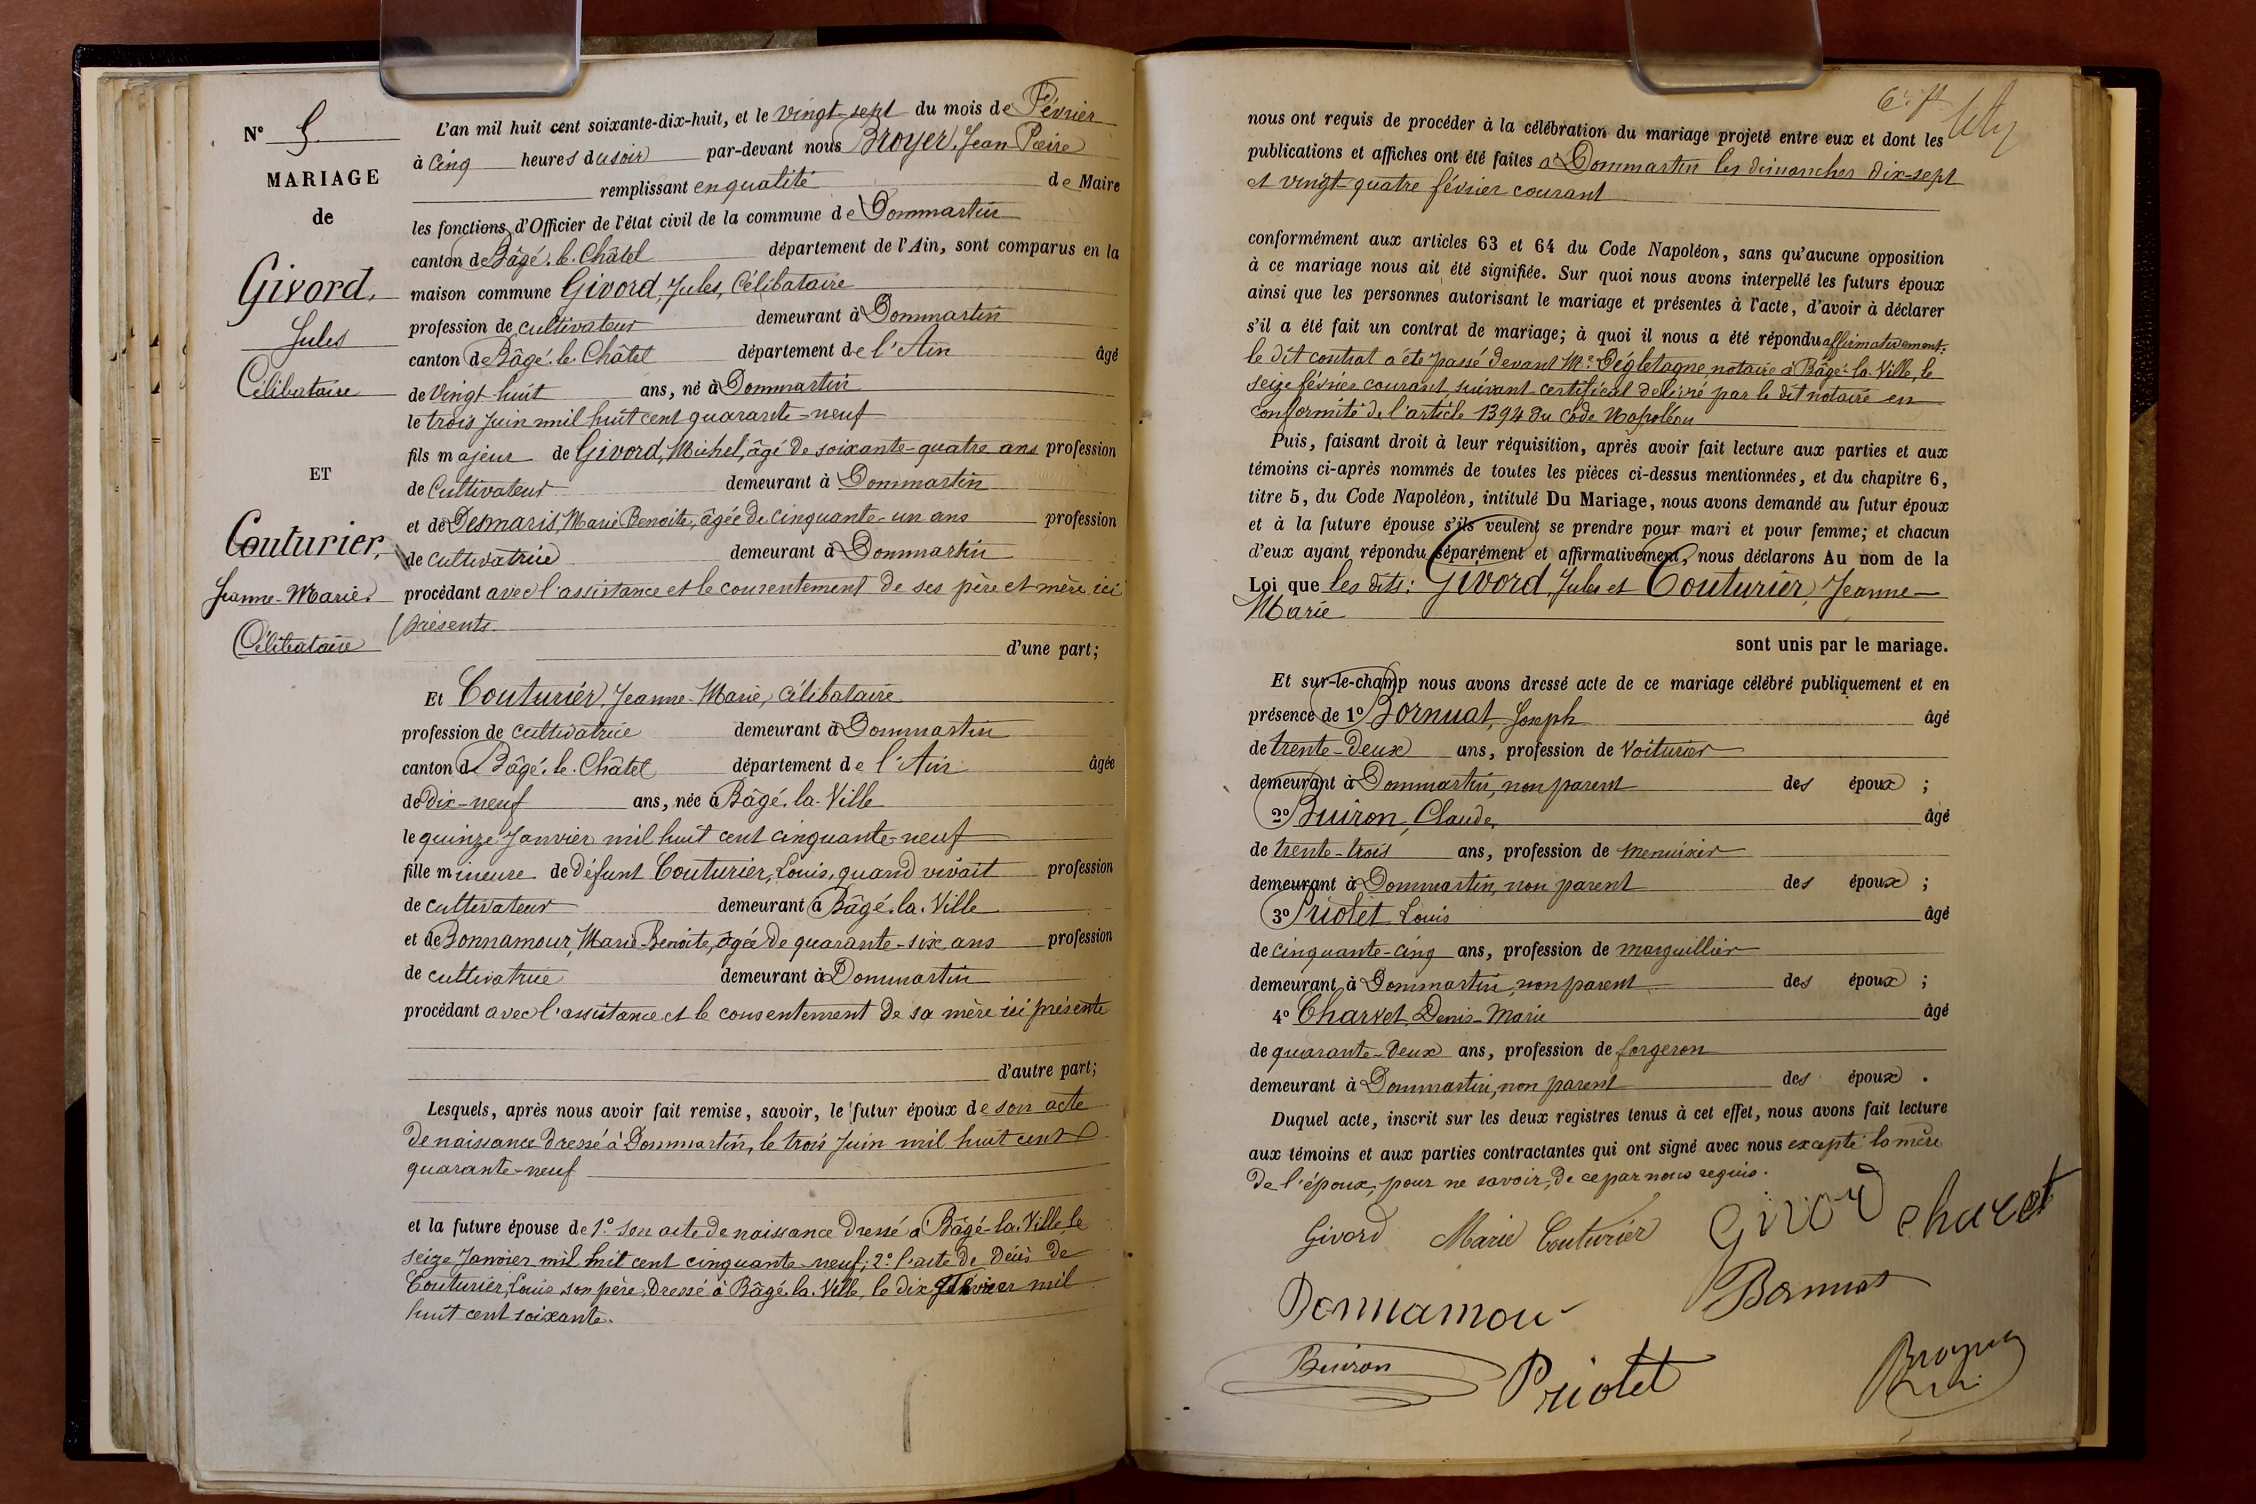 N° 5.
MARIAGE
de
Givord,
Jules
Célibataire
ET
Couturier,
Jeanne-Marie.
Célibataire
L'an mil huit cent soixante-dix-huit, et le vingt-sept du mois de Février
à cinq heures du soir par-devant nous Broyer, Jean Pierre
remplissant en qualité de Maire
les fonctions d'Officier de l'état civil de la commune de Dommartin
canton de Bâgé-le-Châtel département de l'Ain, sont comparus en la
maison commune Givord, Jules, Célibataire
profession de cultivateur demeurant à Dommartin
canton de Bâgé-le-Châtel département de l'Ain âgé
de vingt-huit ans, né à Dommartin
le trois Juin mil huit cent quarante-neuf
fils majeur de Givord, Michel, âgé de soixante-quatre ans profession
de Cultivateur demeurant à Dommartin
et de Desmaris, Marie Benoite, âgée de cinquante-un ans profession
de cultivatrice demeurant à Dommartin
procédant avec l'assistance et le consentement de ses père et mère ici
présents.
d'une part;
Et Couturier, Jeanne-Marie, célibataire
profession de cultivatrice demeurant à Dommartin
canton de Bâgé-le-Châtel département de l'Ain âgée
de dix-neuf ans, née à Bâgé-la-Ville
le quinze Janvier mil huit cent cinquante-neuf
fille mineure de défunt Couturier, Louis, quand vivait profession
de cultivateur demeurant à Bâgé-la-Ville
et de Bonnamour, Marie-Benoite, âgée de quarante-six ans profession
de cultivatrice demeurant à Dommartin
procédant avec l'assistance et le consentement de sa mère ici présente
d'autre part;
Lesquels, après nous avoir fait remise, savoir, le futur époux de son acte
de naissance dressé à Dommartin, le trois Juin mil huit cent
quarante-neuf
et la future épouse de 1° son acte de naissance dressé à Bâgé-la-Ville, le
seize Janvier mil huit cent cinquante-neuf; 2° l'acte de décès de
Couturier, Louis, son père, dressé à Bâgé-la-Ville, le dix mil
huit cent soixante.
nous ont requis de procéder à la célébration du mariage projeté entre eux et dont les
publications et affiches ont été faites à Dommartin les dimanches dix-sept
et vingt-quatre février courant
conformément aux articles 63 et 64 du Code Napoléon, sans qu'aucune opposition
à ce mariage nous ait été signifiée. Sur quoi nous avons interpellé les futurs époux
ainsi que les personnes autorisant le mariage et présentes à l'acte, d'avoir à déclarer
s'il a été fait un contrat de mariage; à quoi il nous a été répondu affirmativement:
le dit contrat a été passé devant Me Dégletagne, notaire à Bâgé-la-Ville, le
seize février courant, suivant certificat délivré par le dit notaire en
conformité de l'article 1394 du Code Napoléon
Puis, faisant droit à leur réquisition, après avoir fait lecture aux parties et aux
témoins ci-après nommés de toutes les pièces ci-dessus mentionnées, et du chapitre 6,
titre 5, du Code Napoléon, intitulé Du Mariage, nous avons demandé au futur époux
et à la future épouse s'ils veulent se prendre pour mari et pour femme; et chacun
d'eux ayant répondu séparément et affirmativement, nous déclarons Au nom de la
Loi que les dits: Givord, Jules et Couturier, Jeanne-
Marie
sont unis par le mariage.
Et sur-le-champ nous avons dressé acte de ce mariage célébré publiquement et en
présence de 1° Bornuat, Joseph âgé
de trente-deux ans, profession de Voiturier
demeurant à Dommartin, non parent des époux;
2° Buiron, Claude, âgé
de trente-trois ans, profession de menuisier
demeurant à Dommartin, non parent des époux;
3° Priolet Louis âgé
de cinquante-cinq ans, profession de marguillier
demeurant à Dommartin, non parent des époux;
4° Charvet, Denis-Marie âgé
de quarante-deux ans, profession de forgeron
demeurant à Dommartin, non parent des époux.
Duquel acte, inscrit sur les deux registres tenus à cet effet, nous avons fait lecture
aux témoins et aux parties contractantes qui ont signé avec nous excepté la mère
de l'époux, pour ne savoir, de ce par nous requis.
Givord Marie Couturier Givord charvet
Bonnamour Bornuat
Buiron Priolet Broyer